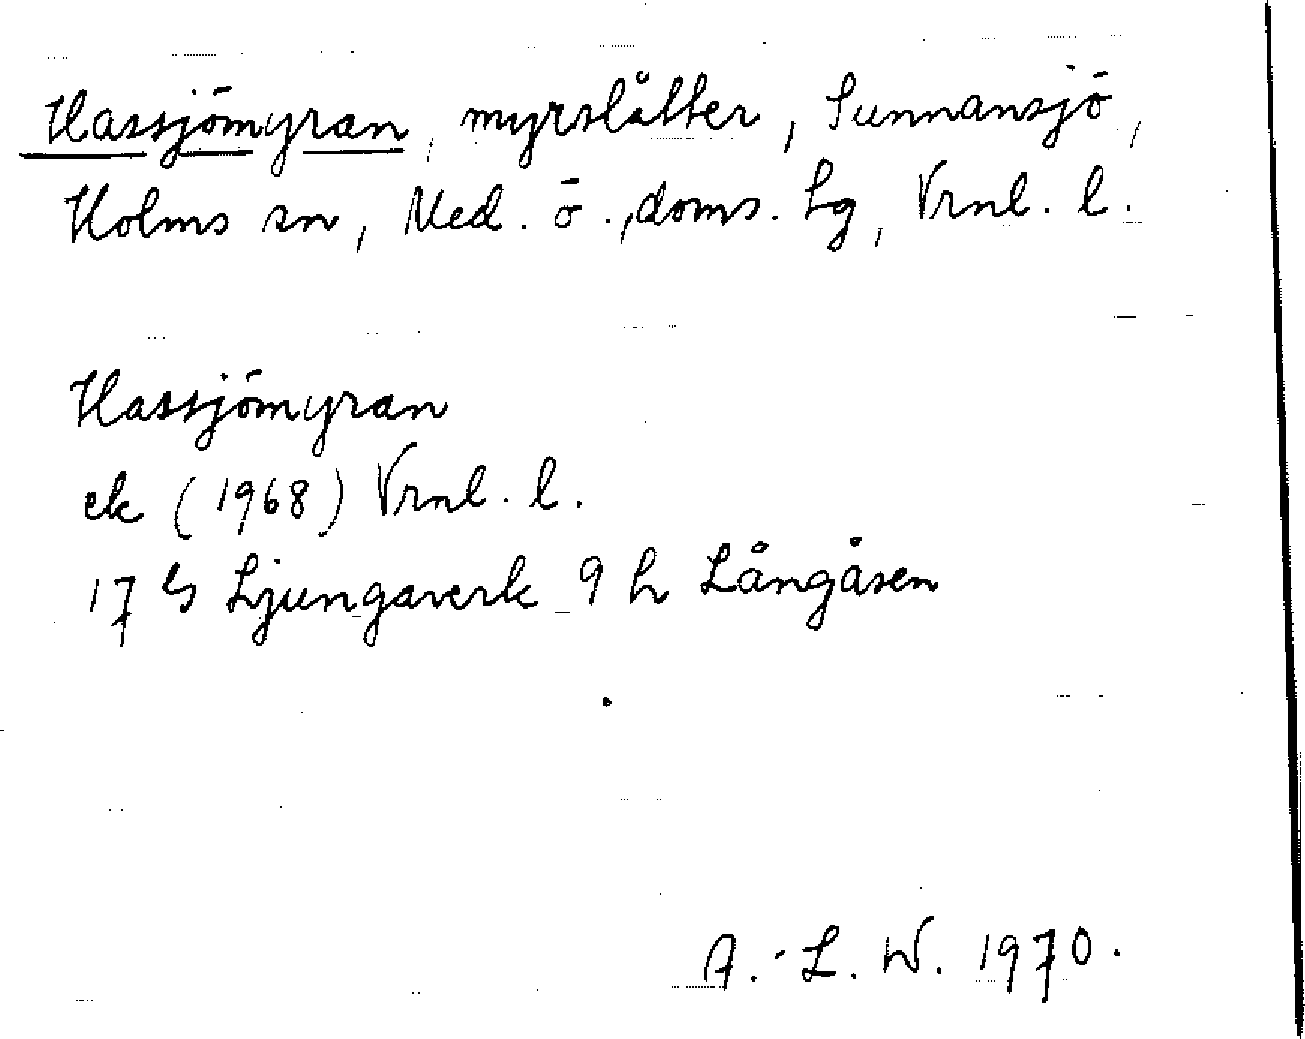 Hassjömyran, myrslåtter, Sunnansjö,
Holms sn, Med. ö., doms. Lg, Vrnl. l.
Hassjömyran
ek (1968) Vrnl. l.
17 G Ljungaverk 9 h Långåsen
A.-L. W. 1970.